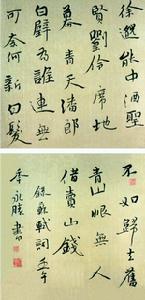 徐邈能中酒聖
賢劉伶席地
幕青天潘郎
白璧為誰連無
可奈何新白髮
不如歸去舊
青山恨無人
借買山錢
錄蘇軾詞壬午
永勝書